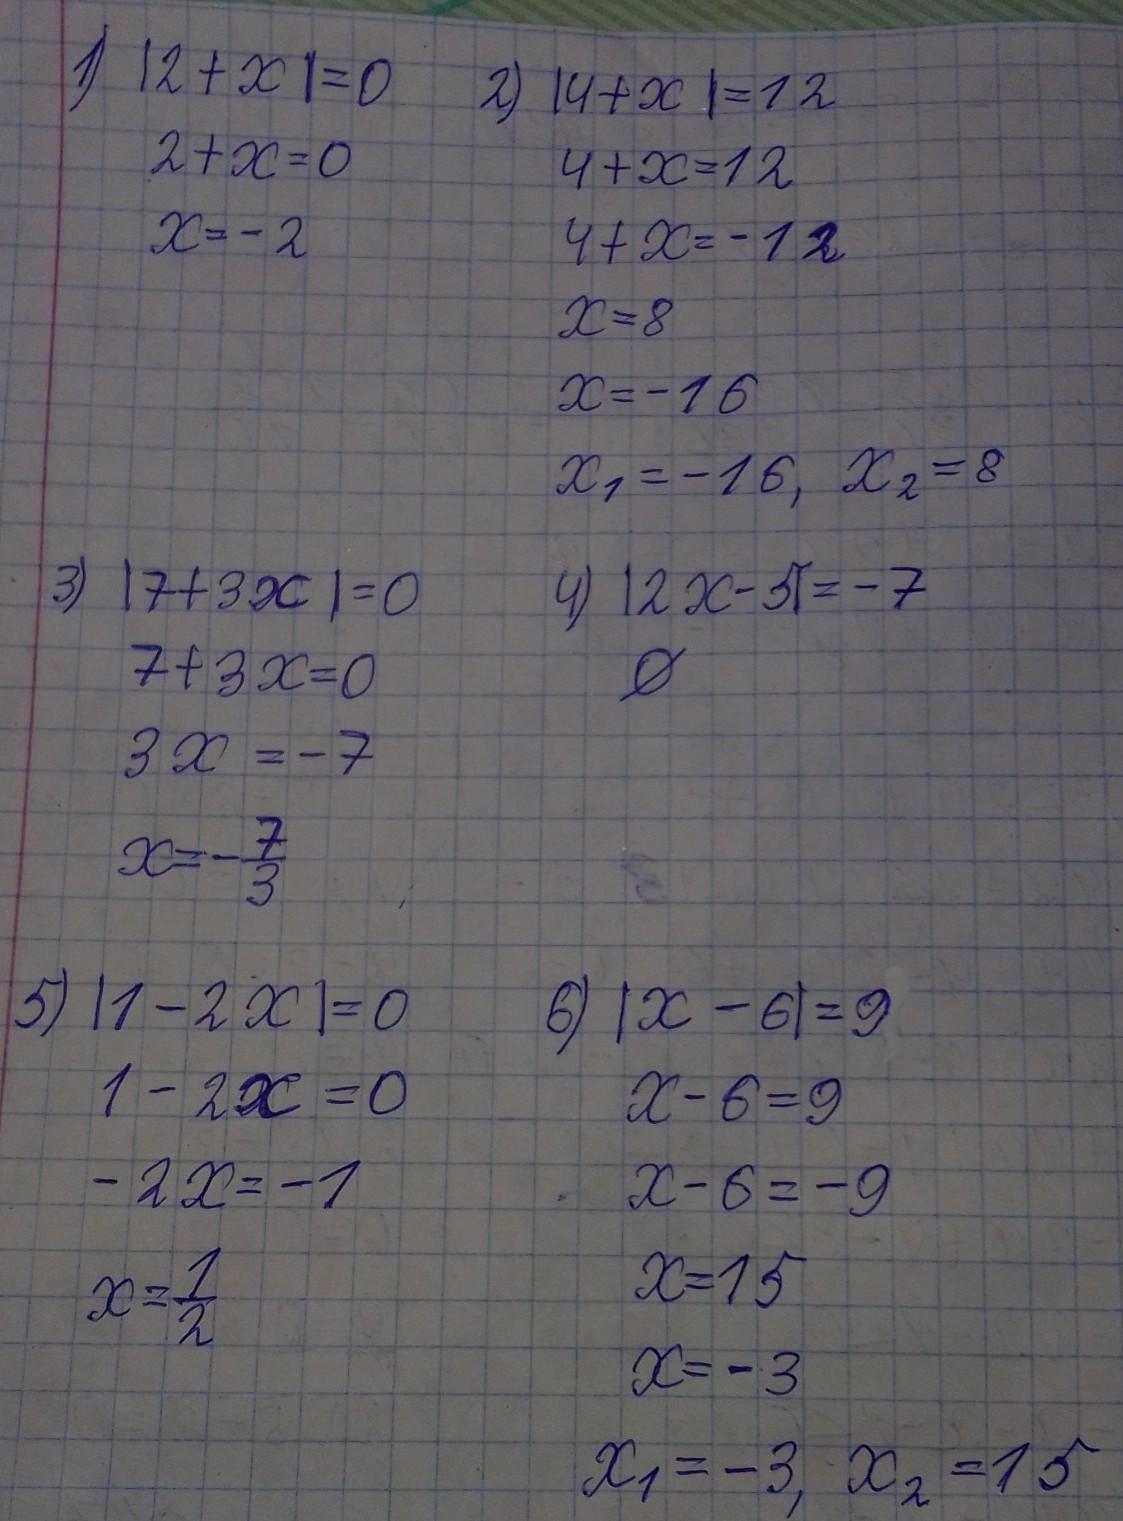 1) |2+x|=0
2+x=0
x=-2
2) |4+x|=12
4+x=12
4+x=-12
x=8
x=-16
x₁=-16, x₂=8
3) |7+3x|=0
7+3x=0
3x=-7
x=-7/3
4) |2x-5|=-7
∅
5) |1-2x|=0
1-2x=0
-2x=-1
x=1/2
6) |x-6|=9
x-6=9
x-6=-9
x=15
x=-3
x₁=-3, x₂=15